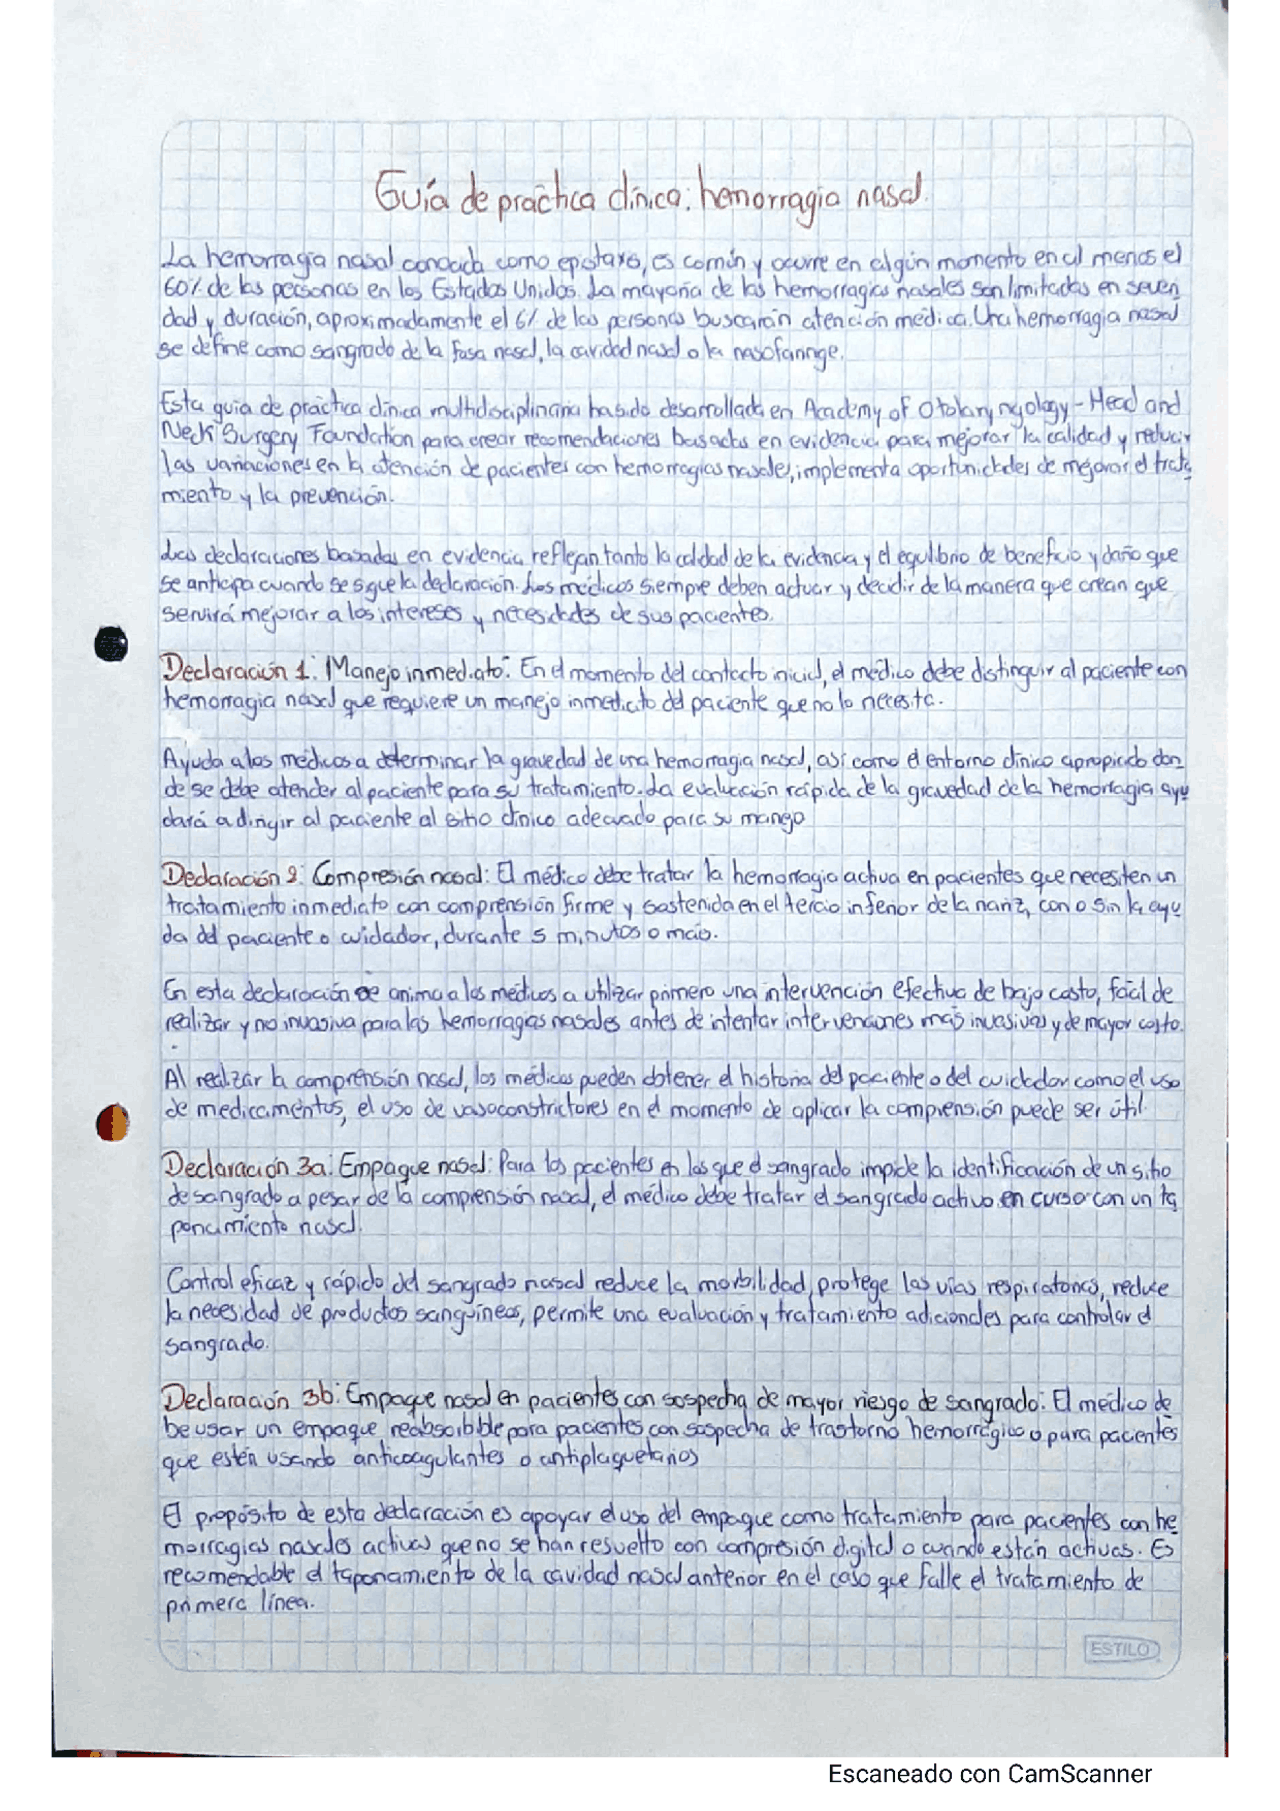 Guía de práctica clínica: hemorragia nasal.
La hemorragia nasal conocida como epistaxis, es común y ocurre en algún momento en al menos el
60% de las personas en los Estados Unidos. La mayoría de las hemorragias nasales son limitadas en severi
dad y duración, aproximadamente el 6% de las personas buscarán atención médica. Una hemorragia nasal
se define como sangrado de la fosa nasal, la cavidad nasal o la nasofaringe.
Esta guía de práctica clínica multidisciplinaria ha sido desarrollada en Academy of Otolaryngology - Head and
Neck Surgery Foundation para crear recomendaciones basadas en evidencia para mejorar la calidad y reducir
las variaciones en la atención de pacientes con hemorragias nasales, implementa oportunidades de mejorar el trata
miento y la prevención.
Las declaraciones basadas en evidencia reflejan tanto la calidad de la evidencia y el equilibrio de beneficio y daño que
se anticipa cuando se sigue la declaración. Los médicos siempre deben actuar y decidir de la manera que crean que
servirá mejorar a los intereses y necesidades de sus pacientes.
Declaración 1: Manejo inmediato: En el momento del contacto inicial, el médico debe distinguir al paciente con
hemorragia nasal que requiere un manejo inmediato del paciente que no lo necesita.
Ayuda a los médicos a determinar la gravedad de una hemorragia nasal, así como el entorno clínico apropiado don
de se debe atender al paciente para su tratamiento. La evaluación rápida de la gravedad de la hemorragia ayu
dará a dirigir al paciente al sitio clínico adecuado para su manejo
Declaración 2: Compresión nasal: El médico debe tratar la hemorragia activa en pacientes que necesiten un
tratamiento inmediato con comprensión firme y sostenida en el tercio inferior de la nariz, con o sin la ayu
da del paciente o cuidador, durante 5 minutos o más.
En esta declaración se anima a los médicos a utilizar primero una intervención efectiva de bajo costo, fácil de
realizar y no invasiva para las hemorragias nasales antes de intentar intervenciones más invasivas y de mayor costo.
Al realizar la comprensión nasal, los médicos pueden obtener el historia del paciente o del cuidador como el uso
de medicamentos, el uso de vasoconstrictores en el momento de aplicar la comprensión puede ser útil.
Declaración 3a: Empaque nasal: Para los pacientes en los que el sangrado impide la identificación de un sitio
de sangrado a pesar de la comprensión nasal, el médico debe tratar el sangrado activo en curso con un ta
ponamiento nasal.
Control eficaz y rápido del sangrado nasal reduce la morbilidad, protege las vías respiratorias, reduce
la necesidad de productos sanguíneos, permite una evaluación y tratamiento adicionales para controlar el
sangrado.
Declaración 3b: Empaque nasal en pacientes con sospecha de mayor riesgo de sangrado: El médico de
be usar un empaque reabsorbible para pacientes con sospecha de trastorno hemorrágico o para pacientes
que estén usando anticoagulantes o antiplaquetarios
El propósito de esta declaración es apoyar el uso del empaque como tratamiento para pacientes con he
morragias nasales activas que no se han resuelto con compresión digital o cuando están activas. Es
recomendable el taponamiento de la cavidad nasal anterior en el caso que falle el tratamiento de
primera línea.
ESTILO
Escaneado con CamScanner